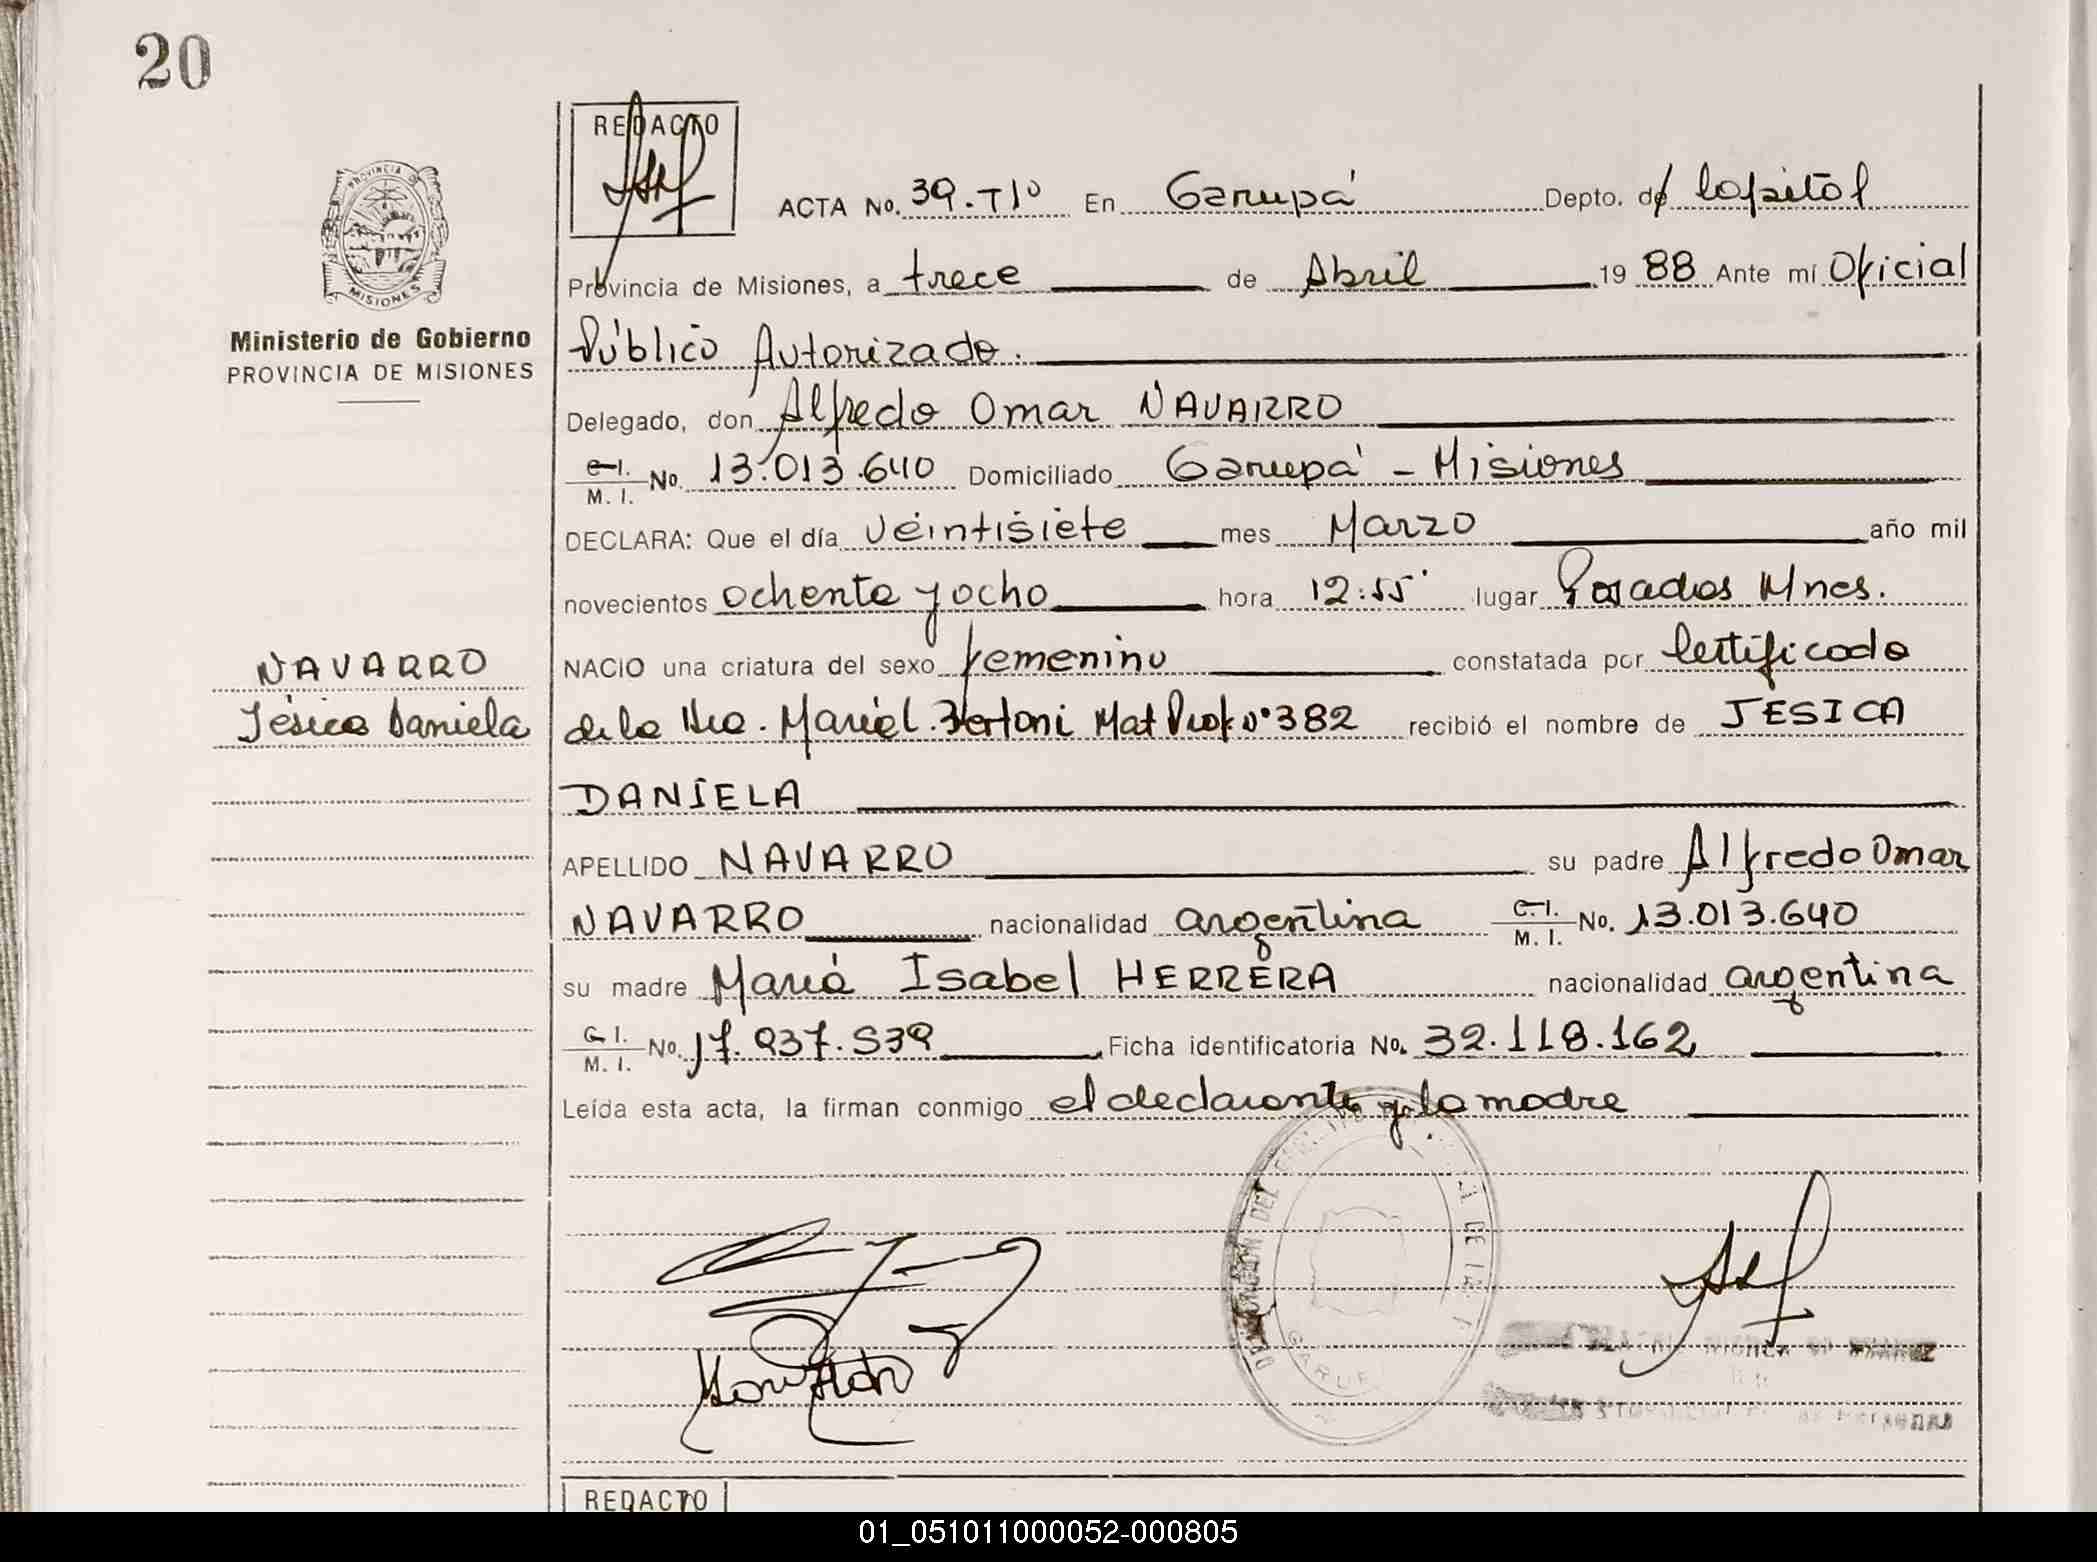 20
REDACTO
PROVINCIA DE
MISIONES
Ministerio de Gobierno
PROVINCIA DE MISIONES
ACTA No. 39.TIº En Garupá Depto. de Capital
Provincia de Misiones, a trece de Abril 19 88 Ante mí Oficial
Público Autorizado.
Delegado, don Alfredo Omar NAVARRO
C.I. M.I. No. 13.013.640 Domiciliado Garupá - Misiones
DECLARA: Que el día veintisiete mes Marzo año mil
novecientos ochenta y ocho hora 12:55' lugar Posadas Mnes.
NACIO una criatura del sexo femenino constatada por Certificado
NAVARRO
Jésica Daniela
de la Dra. Mariel Bertoni Mat Prof Nº 382 recibió el nombre de JESICA
DANIELA
APELLIDO NAVARRO su padre Alfredo Omar
NAVARRO nacionalidad argentina C.I. M.I. No. 13.013.640
su madre María Isabel HERRERA nacionalidad argentina
C.I. M.I. No. 17.937.539 Ficha identificatoria No. 32.118.162
Leída esta acta, la firman conmigo el declarante y la madre
REDACTO
01_051011000052-000805